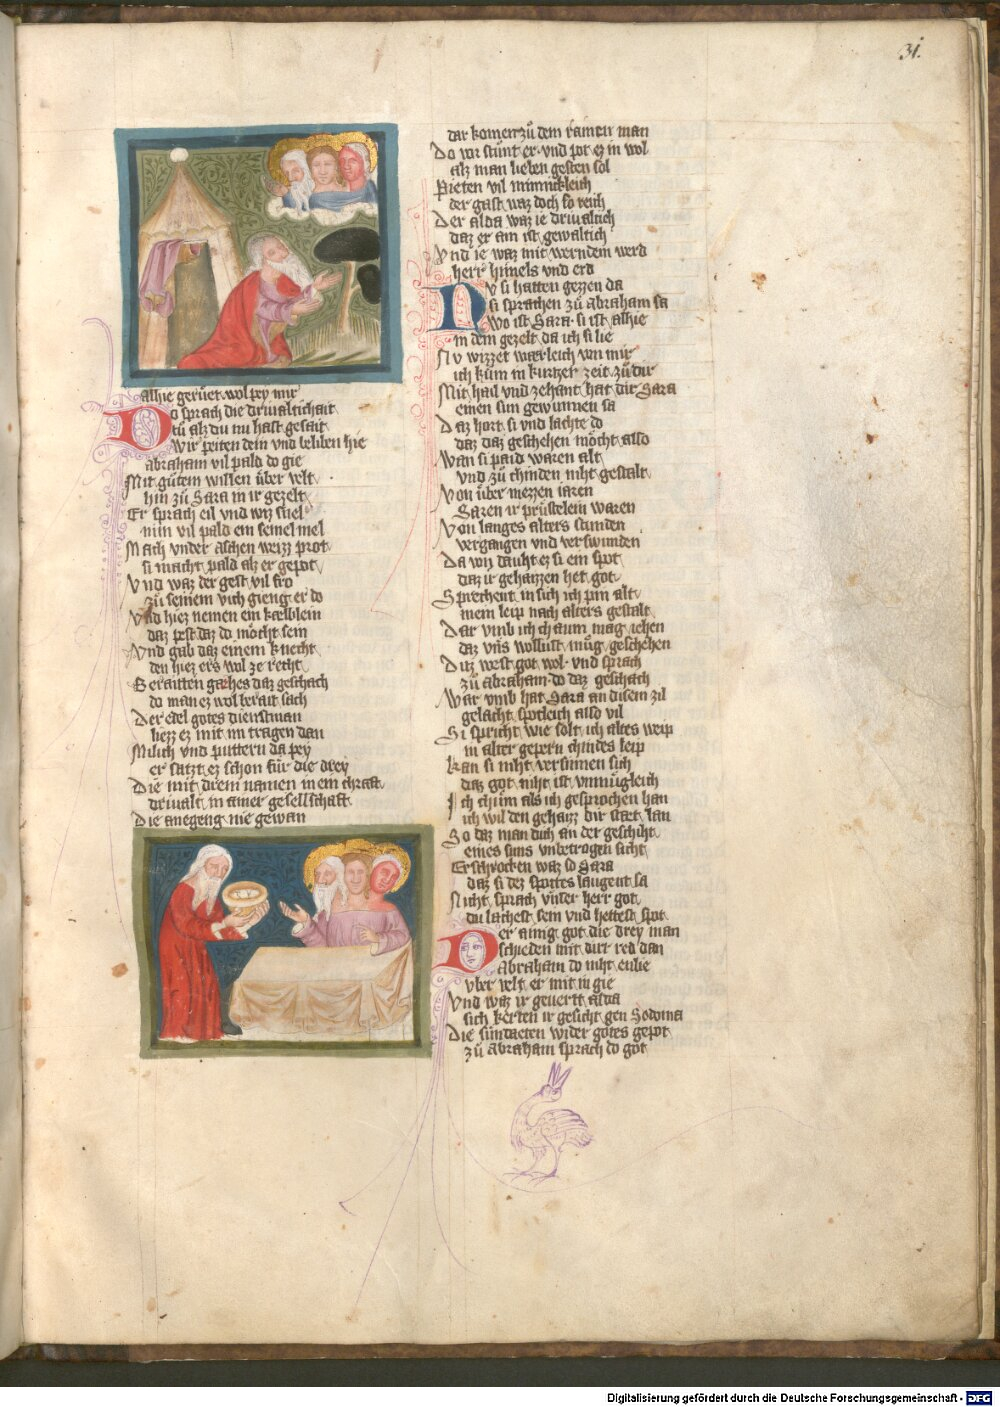 31.
alhie geruet wol pey mir
Do sprach die drivaltichait
tu alz du nu hast gesait
Wir peiten dein vnd beliben hie
abraham vil pald do gie
Mit gůtem willen über velt
hin zů Sara in ir gezelt
Er sprach eil vnd wiz snel
nim vil pald ein semel mel
Mach vnder aschen weizz prot
si macht pald alz er gepot
Vnd waz der gest vil fro
zů seinem vich gieng er do
Vnd hiez nemen ein kaelblein
daz pest daz do mocht sein
Vnd gab daz einem knecht
den hiez ers wol ze recht
Beraitten gaehes daz geschach
do man ez wol berait sach
Der edel gotes dienstman
liezz ez mit im tragen dan
Milich vnd puttern da pey
er satzt ez schon für die drey
Die mit drein namen in ein chraft
drivalt in ainer gesellschaft
Die anegeng nie gewan
dar komen zů dem rainen man
Do vor stůnt er vnd pot ez in wol
alz man lieben gesten sol
Pieten vil minnickleich
der gast waz doch so reich
Der alda waz ie drivaltich
daz er ain ist gewaltich
Vnd ie waz mit werndem werd
herr himels vnd erd
Nv si hatten gezzen da
si sprachen zů abraham sa
Wo ist Sara si ist alhie
in dem gezelt da ich si lie
Nv wizzet waerleich von mir
ich kům in kurtzer zeit zů dir
Mit hail vnd zehant hat dir Sara
einen sun gewunnen sa
Daz hort si vnd lachte do
daz daz geschehen mocht also
Wan si paid waren alt
vnd zů chinden niht gestalt
Von über mezzen iaren
Saren ir prüstelein waren
Von langes alters stunden
vergangen vnd verswunden
Da von dauht ez si ein spot
daz ir gehaizzen het got
Sprechent in sich ich pin alt
mein leip nach alters gestalt
Dar vmb ich chaum mag iehen
daz vns wollust müg geschehen
Ditz west got wol vnd sprach
zů abraham do daz geschach
War vmb hat Sara an disem zil
gelacht spotleich also vil
Si spricht wie solt ich altes weip
in alter gepern chindes leip
kan si niht versinnen sich
daz got niht ist vnmügleich
Ich chům als ich gesprochen han
ich wil den gehaizz dir staet lan
So daz man dich an der geschiht
eines suns vnbetrogen siht
Erschrocken waz so Sara
daz si dez spottes laugent sa
Nicht sprach vnser herr got
du lachest sein vnd hettest spot
Der ainig got die drey man
schieden mit dirr red dan
Abraham do niht enlie
vber velt er mit in gie
Vnd waz ir geuertt alda
sich kerten ir gesicht gen Sodoma
Die sündaeten wider gotes gepot
zů abraham sprach do got
Digitalisierung gefördert durch die Deutsche Forschungsgemeinschaft - DFG